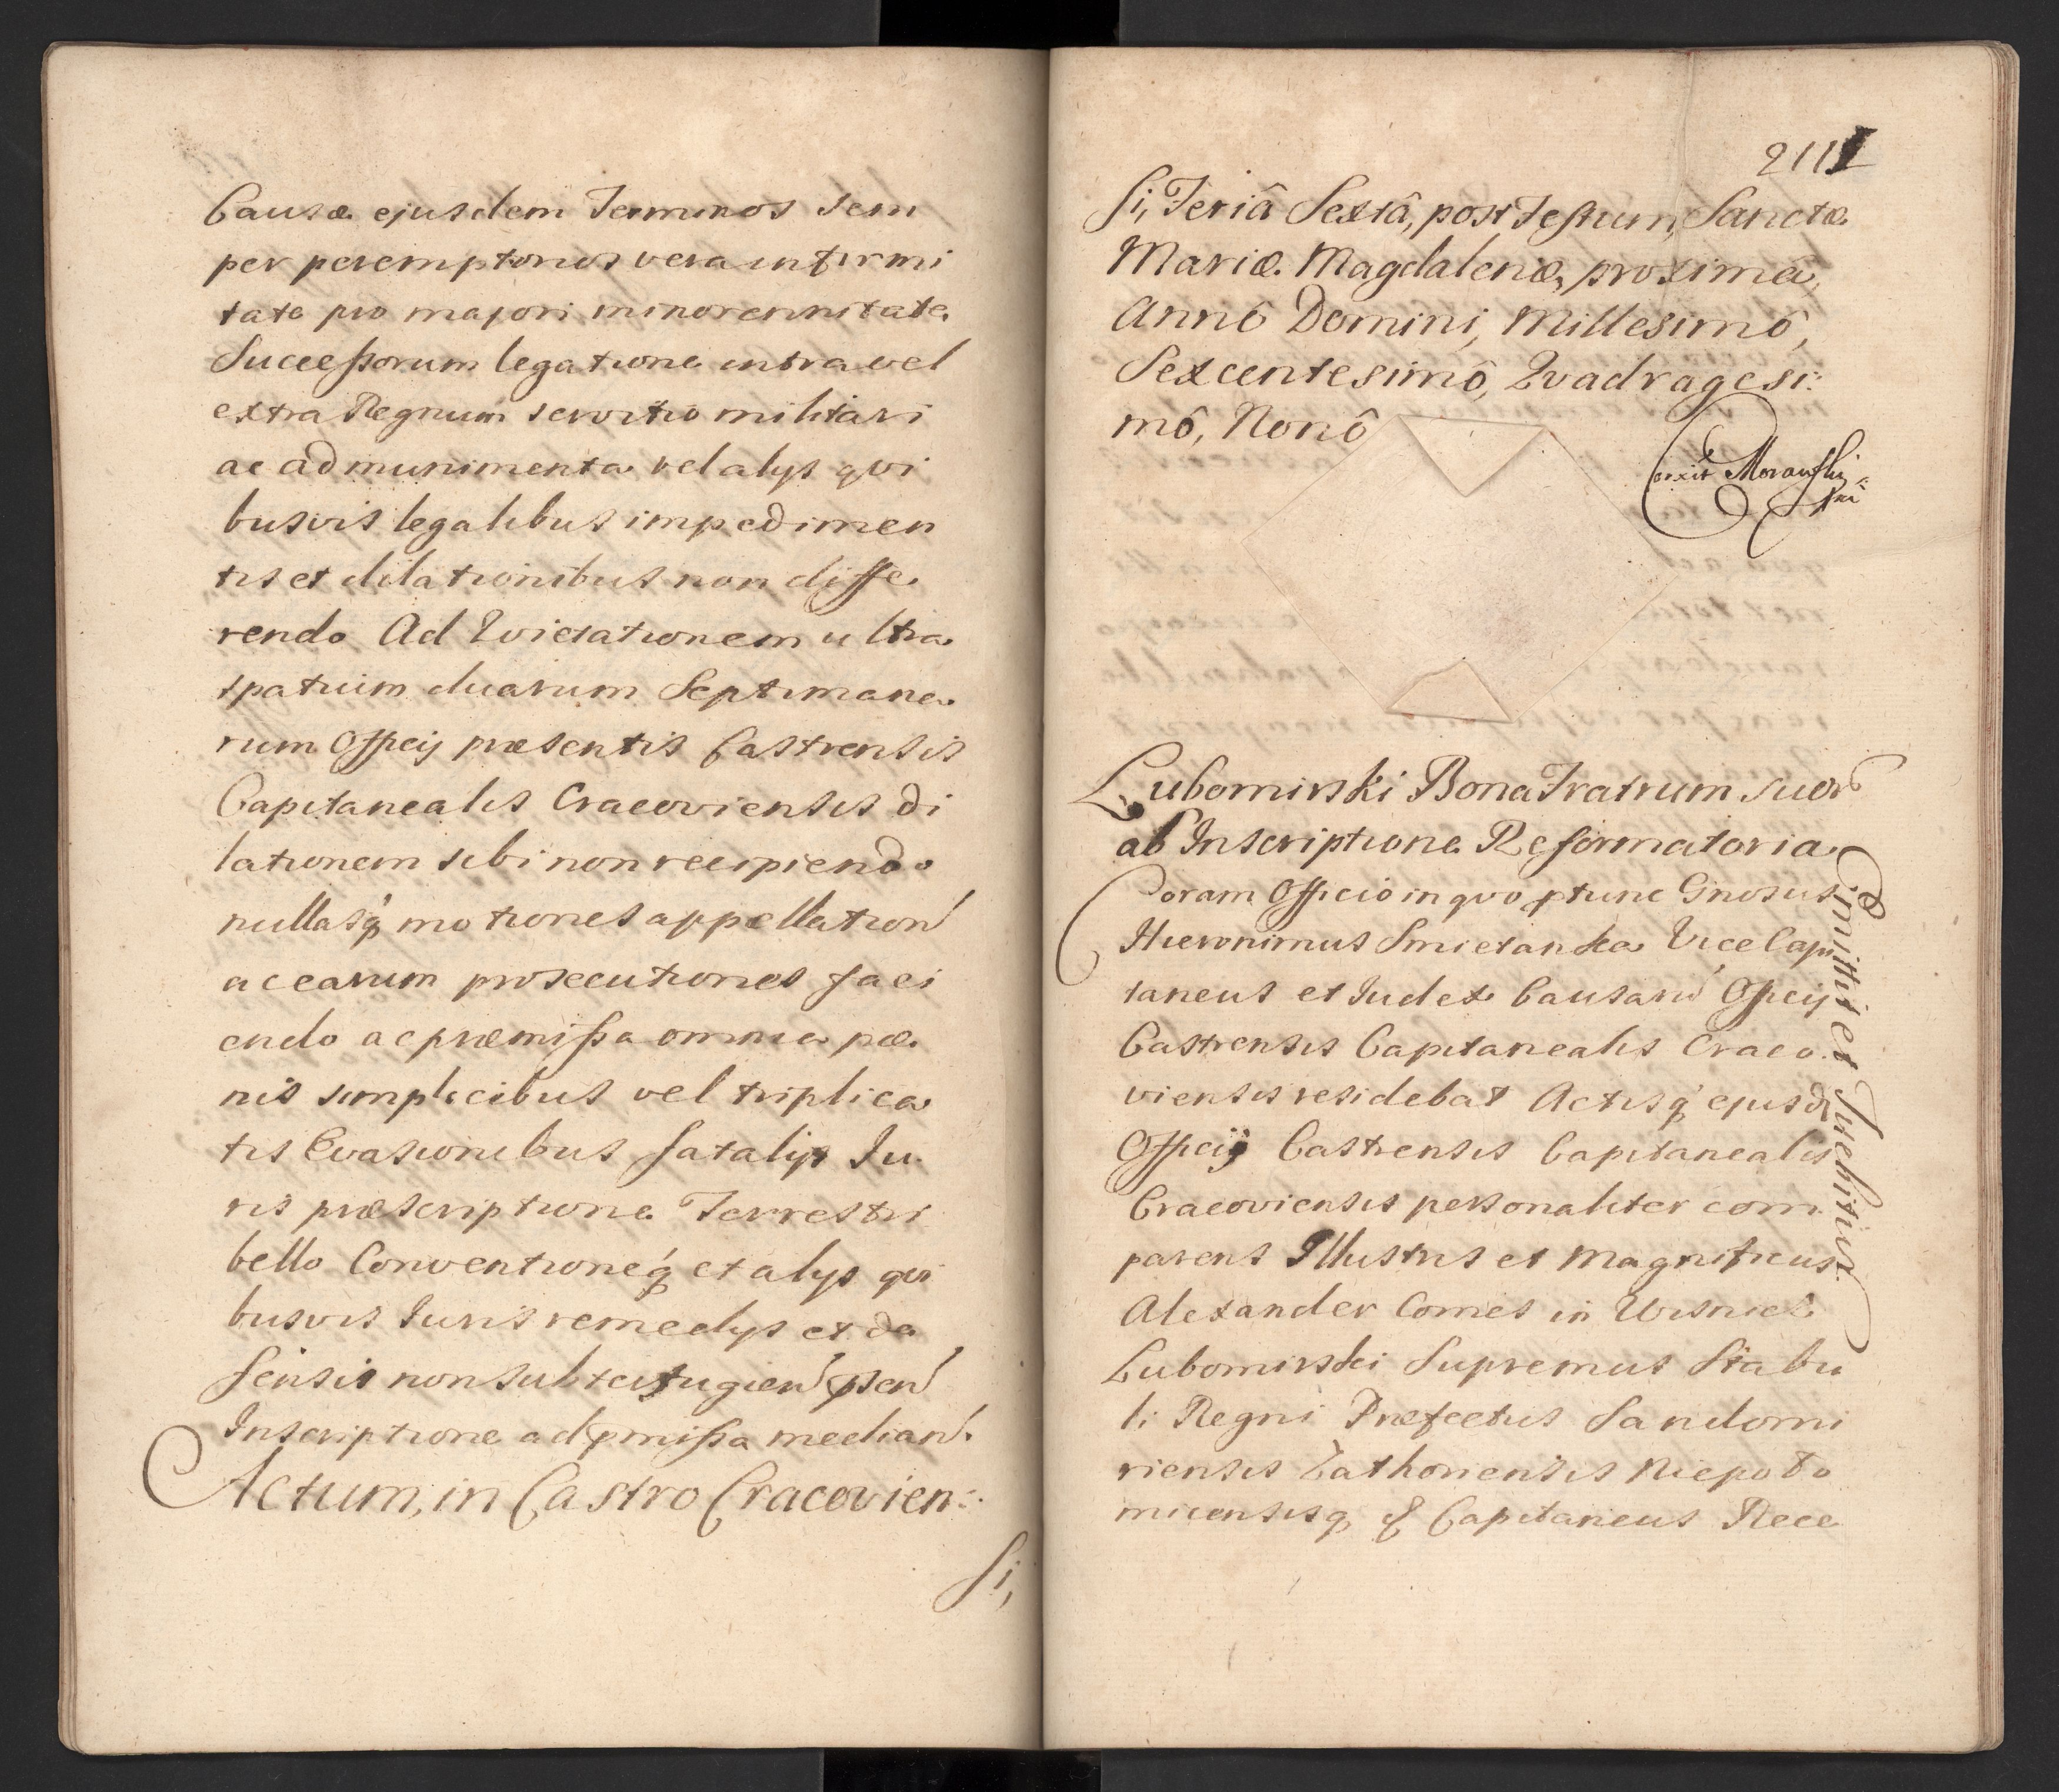 Causæ ejusdem Terminos Sem
per peremptorios vera infirmi
tate pro majori minorennitate
Successorum legatione intra vel
extra Regnum servitio militari
ac ad munimenta vel alys qvi
busvis legalibus impedimen
tis et dilationibus non diffe
rendo Ad Evictationem ultra
spatium duarum Septimana
rum Officij præsentis Castrensis
Capitanealis Cracoviensis di
lationem sibi non recipiendo
nullasq motiones appellation
ac earum prosecutiones faci
endo ac præmissa omnia pœ
nis simplicibus vel triplica
tis Evasionibus fatalijs Iu
ris præscriptione Terrestri
bello Conventioneq et alys qvi
busvis Iuris remedys et de
fensis non subterfugien psen
Inscriptione ad pmissa median
Actum, in Castro Cracovien:
si,
2111
si, Feriâ Sextâ, post Festum, Sanctæ
Mariæ Magdalenæ, proximâ,
Annô Domini, Millesimô,
Sexcentesimô, Qvadragesi:
mô, Nonô
Lubomirski Bona Fratrum suor
ab Inscriptione Reformatoria
Evmittit et Suscipit
Coram Officio in qvo ptunc Gnosus
Hieronimus Smietanka Vice Capi
taneus et Iudex Causarū Officij
Castrensis Capitanealis Craco
viensis residebat Actisq ejusd
Officij Castrensis Capitanealis
Cracoviensis personaliter com
parens Illustris et Magnificus
Alexander Comes in Wisnicz
Lubomirski Supremus Stabu
li Regni Præfectus Sandomi
riensis Zathoriensis Niepoło
micensisq & Capitaneus Rece